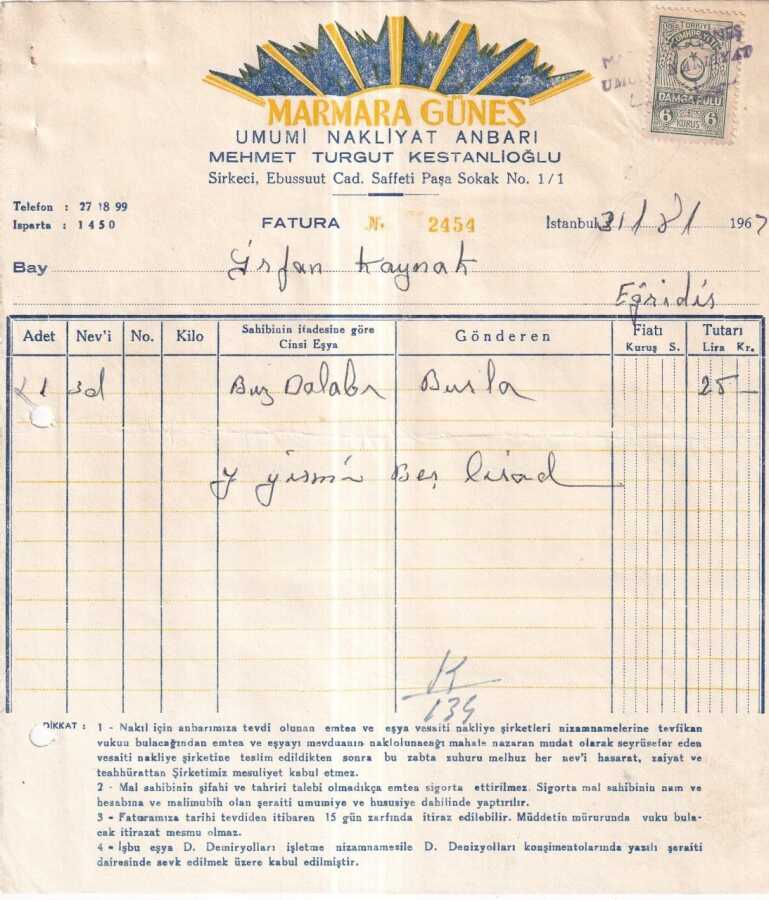 MARMARA GÜNEŞ
UMUMİ NAKLİYAT ANBARI
MEHMET TURGUT KESTANLİOĞLU
Sirkeci, Ebussuut Cad. Saffeti Paşa Sokak No. 1/1
TÜRKİYE
DAMGA PULU
6 KURUŞ 6
Telefon : 27 18 99
Isparta : 1450
FATURA № 2454
İstanbul 31/8/1967
Bay İrfan Kaynak
Eğridir
Adet Nev'i No. Kilo Sahibinin ifadesine göre Cinsi Eşya Gönderen Fiatı Kuruş S. Tutarı Lira Kr.
1 Buz Dolabı 25 —
Y yirmi Beş lirad
K
134
DİKKAT : 1 - Nakıl için anbarımıza tevdi olunan emtea ve eşya vesaiti nakliye şirketleri nizamnamelerine tevfikan
vukuu bulacağından emtea ve eşyayı mevduanın naklolunacağı mahale nazaran mudat olarak seyrüsefer eden
vesaiti nakliye şirketine teslim edildikten sonra bu zabta zuhuru melhuz her nev'i hasarat, zaiyat ve
teahhürattan Şirketimiz mesuliyet kabul etmez.
2 - Mal sahibinin şifahi ve tahriri talebi olmadıkça emtea sigorta ettirilmez. Sigorta mal sahibinin nam ve
hesabına ve malimubih olan şeraiti umumiye ve hususiye dahilinde yaptırılır.
3 - Faturamıza tarihi tevdiden itibaren 15 gün zarfında itiraz edilebilir. Müddetin mürurunda vuku bula-
cak itirazat mesmu olmaz.
4 - İşbu eşya D. Demiryolları işletme nizamnamesile D. Denizyolları konşimentolarında yazılı şeraiti
dairesinde sevk edilmek üzere kabul edilmiştir.